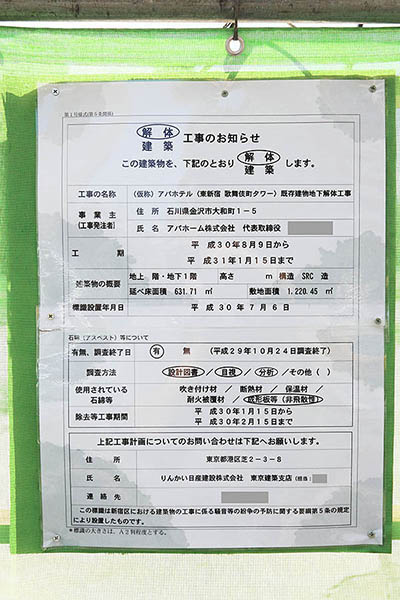 第1号様式(第5条関係)
解体
建築 工事のお知らせ
この建築物を、下記のとおり 解体 建築 します。
工事の名称 (仮称)アパホテル(東新宿 歌舞伎町タワー)既存建物地下解体工事
事業主(工事発注者) 住所 石川県金沢市大和町1-5
氏名 アパホーム株式会社 代表取締役
工期 平成30年8月9日から
平成31年1月15日まで
建築物の概要 地上 階・地下1階 高さ m 構造 SRC 造
延べ床面積 631.71 ㎡ 敷地面積 1,220.45 ㎡
標識設置年月日 平成30年7月6日
石綿(アスベスト)等について
有無、調査終了日 有 無 (平成29年10月24日調査終了)
調査方法 設計図書/目視/分析/その他( )
使用されている石綿等 吹き付け材/断熱材/保温材/
耐火被覆材/成形板等(非飛散性)
除去等工事期間 平成30年1月15日から
平成30年2月15日まで
上記工事計画についてのお問い合わせは下記へお願いします。
住所 東京都港区芝2-3-8
氏名 りんかい日産建設株式会社 東京建築支店(担当:
連絡先
この標識は新宿区における建築物の工事に係る騒音等の紛争の予防に関する要綱第5条の規定
により設置したものです。
*標識の大きさは、A2判程度とする。